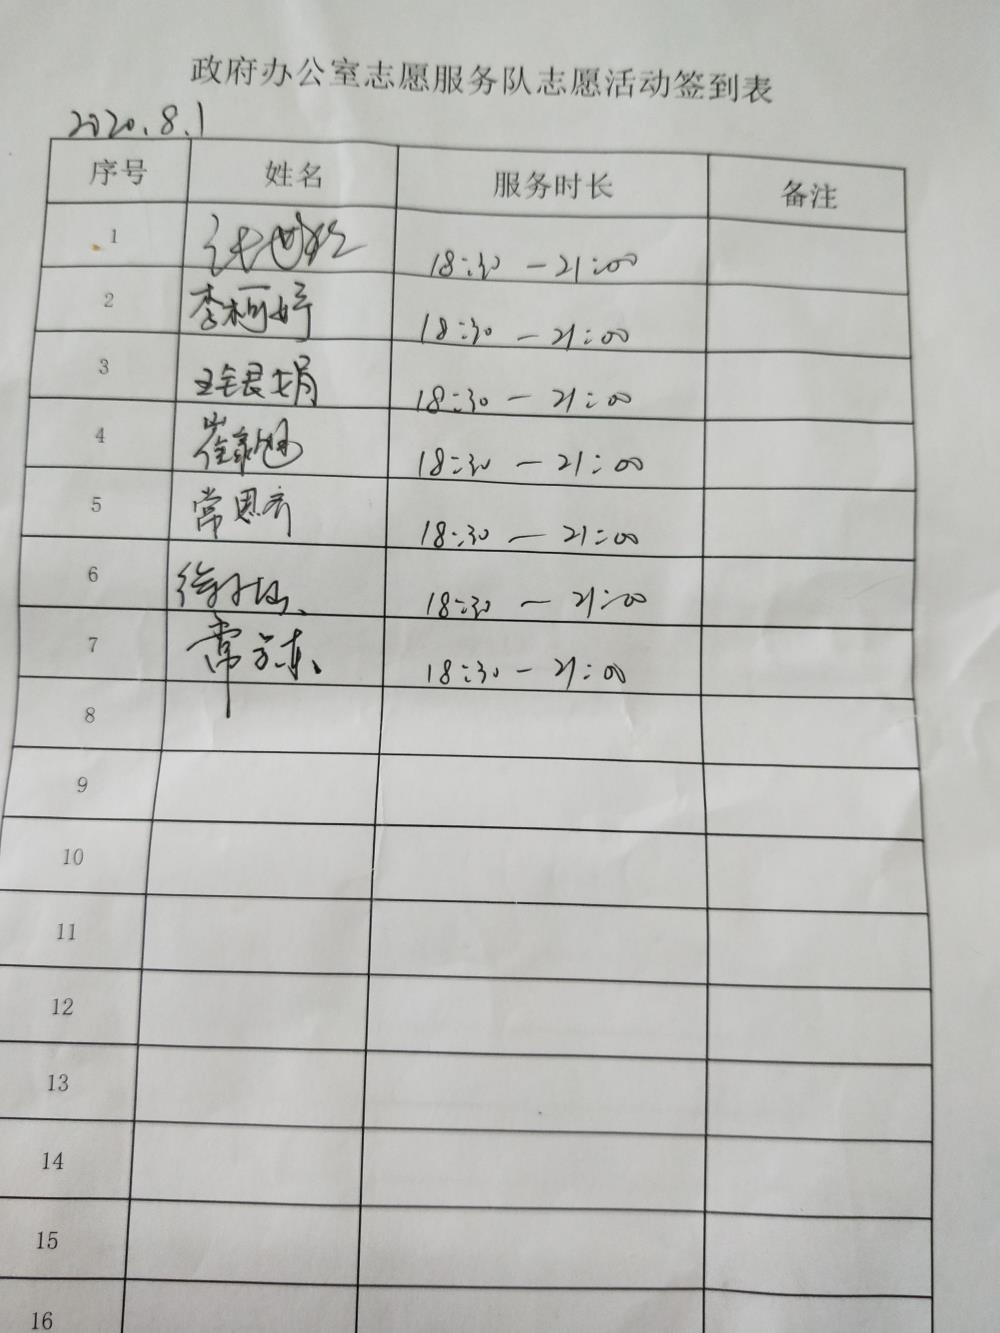 政府办公室志愿服务队志愿活动签到表
2020.8.1
序号 姓名 服务时长 备注
1 18:30 — 21:00
2 李柯婷 18:30 — 21:00
3 王银娟 18:30 — 21:00
4 崔 18:30 — 21:00
5 常恩齐 18:30 — 21:00
6 徐 18:30 — 21:00
7 常 18:30 — 21:00
8
9
10
11
12
13
14
15
16